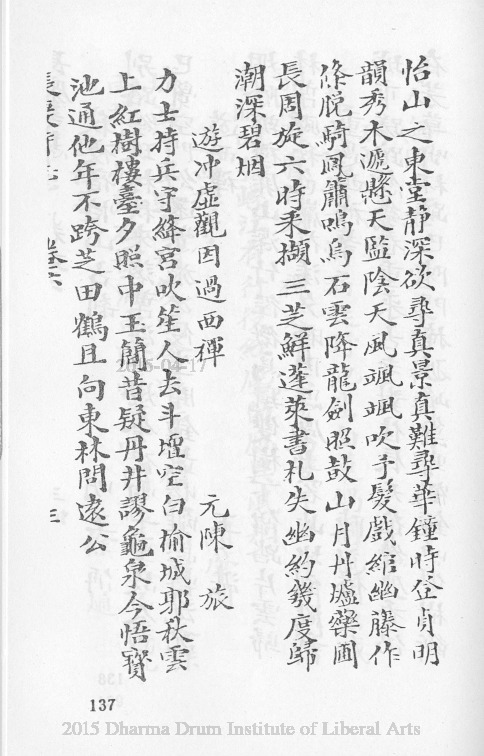 怡山之東堂静深欲尋真景真難尋華鐘時貞明
韻秀木遞懸天監陰天風颯颯吹予髮戲綰幽藤作
絛脫騎鳳簫鳴烏石雲降龍劍照鼓山月丹爐藥圃
長周旋六時采擷三芝鮮蓬萊書札失幽約幾度歸
潮深碧烟
遊冲虛觀因過西禪 元陳旅
力士持兵守絳宮吹笙人去斗壇空白榆城郭秋雲
上紅樹樓臺夕照中玉簡昔疑丹井謬龜泉今悟寶
池通他年不跨芝田鶴且向東林問遠公
137
2015 Dharma Drum Institute of Liberal Arts